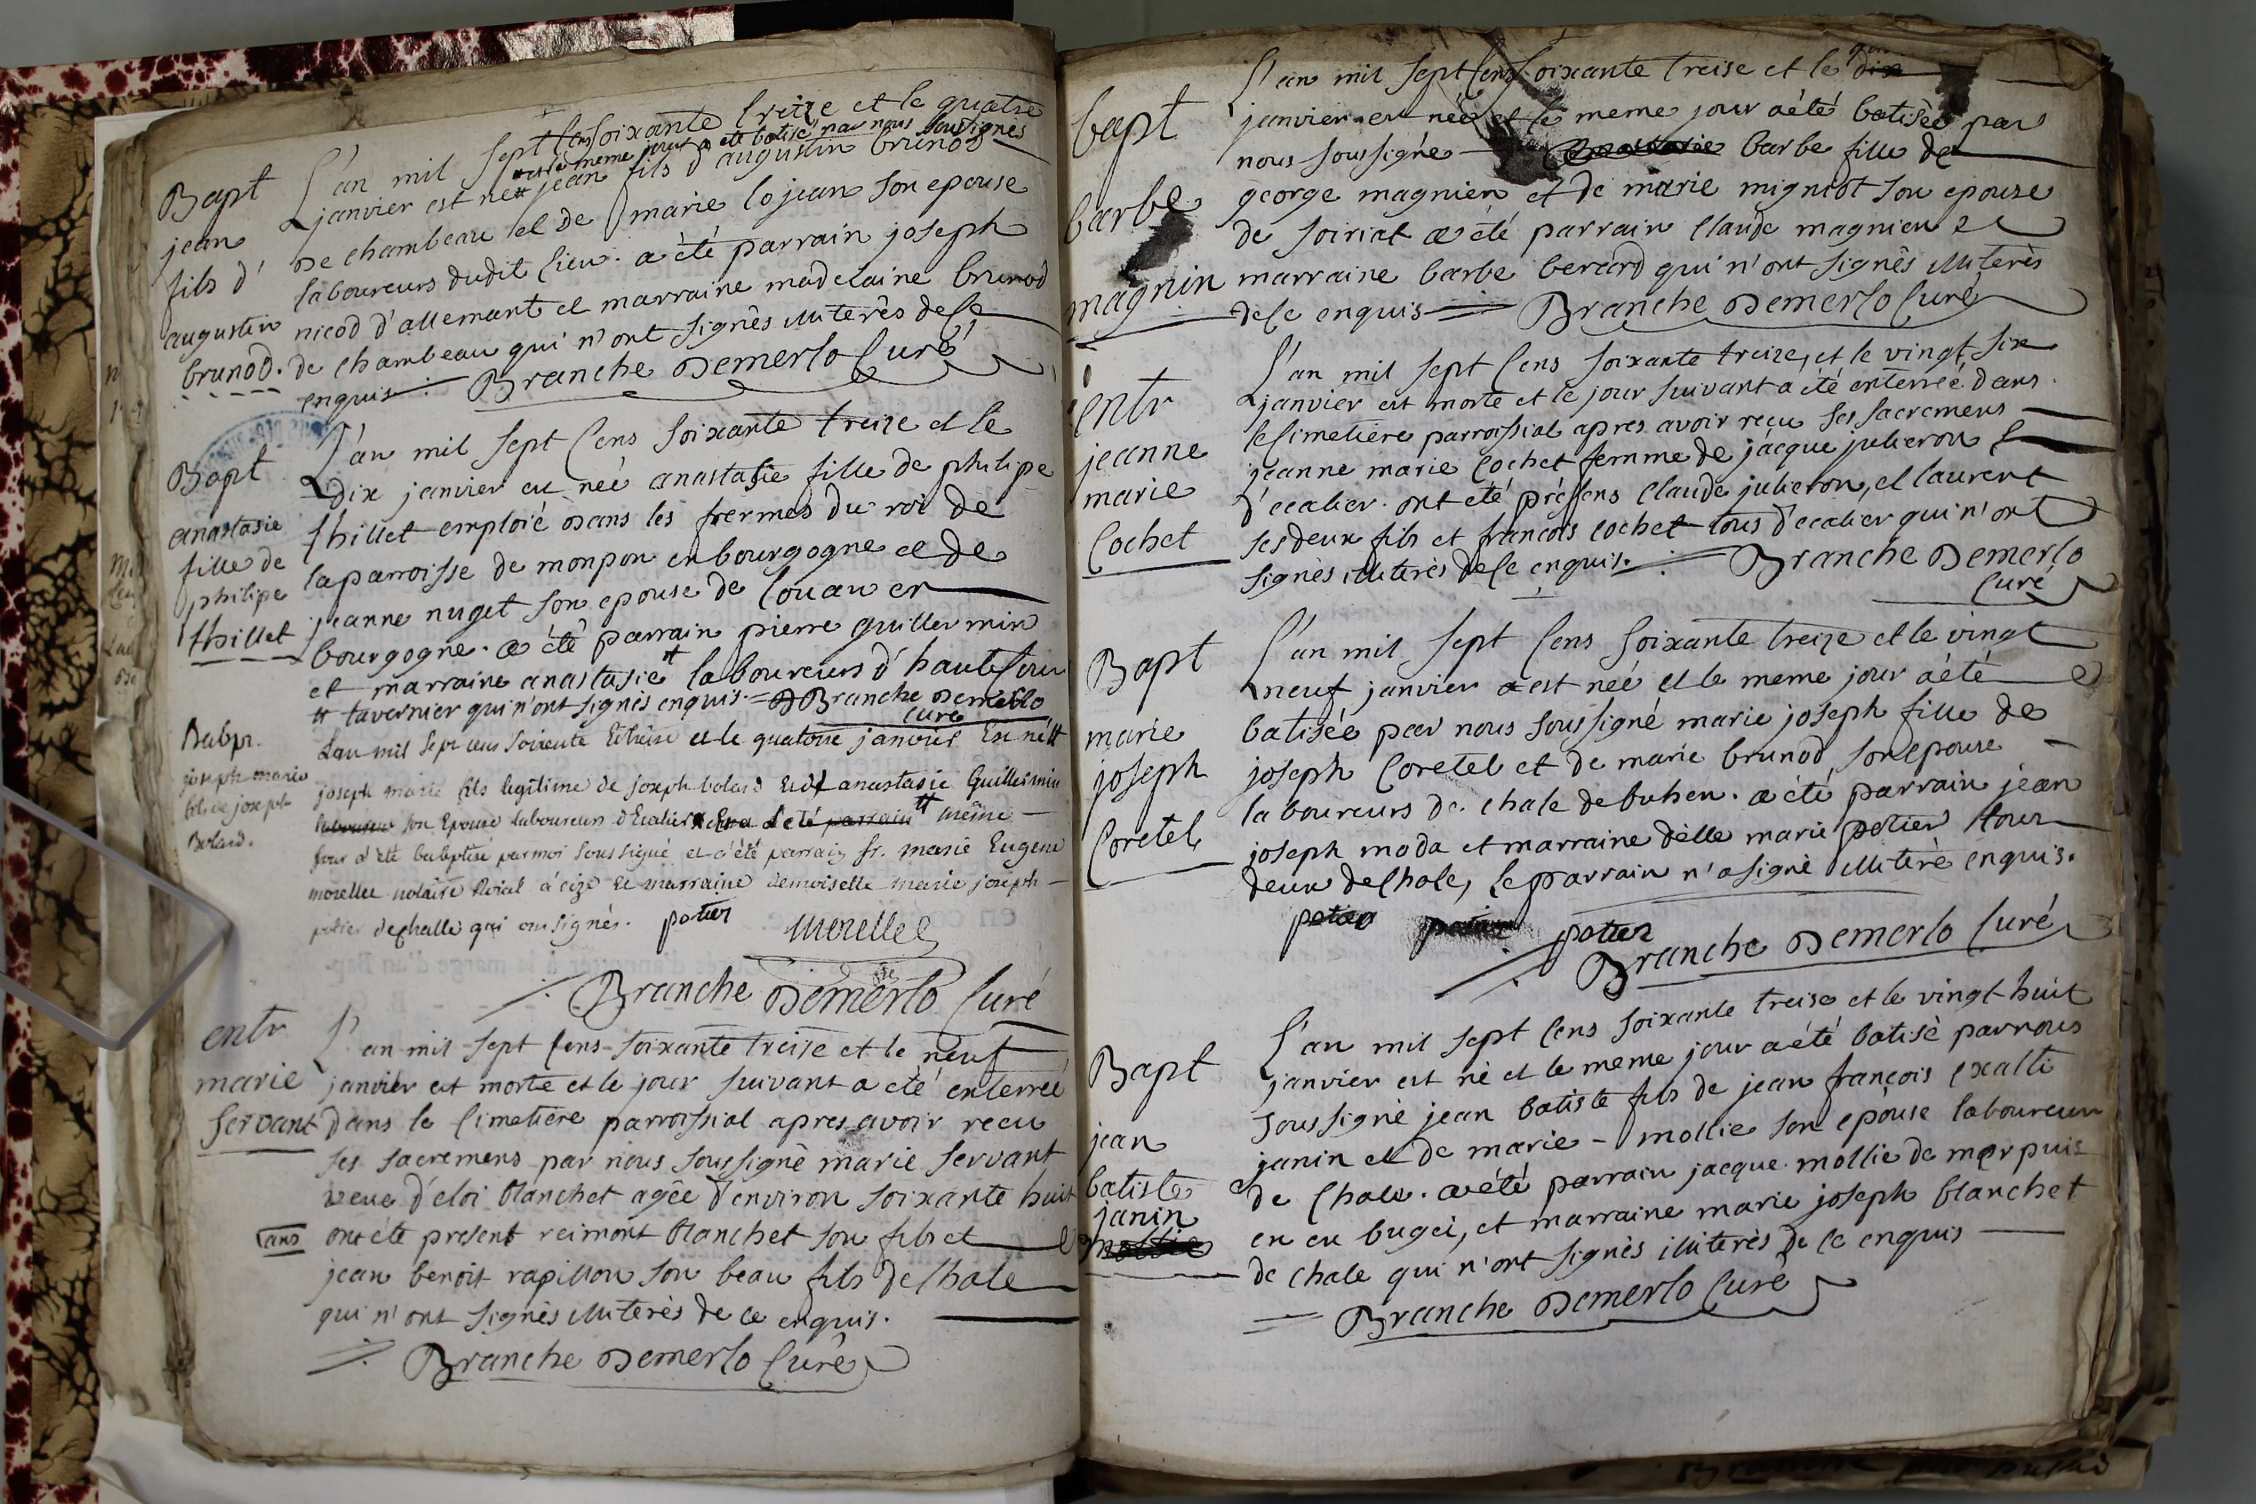 Bapt
jean
fils d'
augustin
brunod.
L'an mil sept cens soixante treize et le quatre
et le meme jour a été batisé par nous soussignés
janvier est né # jean fils d'augustin brunod
de chambeau et de marie lojean son epouse
laboureurs dudit lieu. a été parrain joseph
nicod d'allemant et marraine madelaine brunod
de chambeau qui n'ont signés illiterés de ce
enquis Branche Demerlo Curé
Bapt
anastasie
fille de
philipe
thillet
L'an mil sept cens soixante treize et le
dix janvier est neé anastasie fille de philipe
thillet emploié dans les frermes du roi de
la parroisse de monpon en bourgogne et de
jeanne nuget son epouse de louan en
bourgogne. a été parrain pierre guillermin
et marraine anastasie # laboureurs d'hautecour
# tavernier qui n'ont signés enquis. = Branche Demerlo
curé
Babpt.
joseph marie
fils de joseph
Bolard.
L'an mil sept cens soixente Et treize et le quatorze janvier Est né #
joseph marie fils legitime de joseph bolard Et d'anastasie Guillermin
laboureur son Epouse laboureurs d'Ecalier Et a été parrain # même
jour a été babptisé par moi soussigné et a été parrain fr. marie Eugene
morellet notaire Roial à cize Et marraine demoiselle marie joseph
potier de challe qui ont signés. potier morellet
Branche Demerlo Curé
entr
marie
servant
L'an mil sept cens soixante treise et le neuf
janvier est morte et le jour suivant a eté enterreé
dans le cimetiere parroissial apres avoir recu
ses sacremens par nous soussigné marie servant
veue d'eloi blanchet agée d'environ soixante huit
ans ont été present reimont blanchet son fils et
jean benoit rapillon son beau fils de chale
qui n'ont signés illiterés de ce enquis.
Branche Demerlo Curé
bapt
barbe
magnin
L'an mil sept cens soixante treise et le dix
janvier est neé et le meme jour a été batisée par
nous soussigné barbe fille de
george magnien et de marie migniot son epouse
de soiriat a été parrain claude magnien et
marraine barbe berard qui n'ont signés illiterés
de ce enquis Branche Demerlo Curé
entr
jeanne
marie
Cochet
L'an mil sept cens soixante treize, et le vingt six
janvier est morte et le jour suivant a été enterreé dans
le cimetiere parroissial apres avoir reçu ses sacremens
jeanne marie cochet femme de jacque julieron
d'ecalier. ont été présens claude julieron, et laurent
ses deux fils et francois cochet tous d'ecalier qui n'ont
signés illiterés de ce enquis. Branche Demerlo
curé
Bapt
marie
joseph
Coretel
L'an mil sept cens soixante treize et le vingt
neuf janvier a est neé et le meme jour a été
batisée par nous soussigné marie joseph fille de
joseph Coretel et de marie brunod son epouse
laboureurs de chale de buhen. a été parrain jean
joseph moda et marraine délle marie potier tous
deux de chale, le parrain n'a signé illiteré enquis.
potier potier potier
Branche Demerlo Curé
Bapt
jean
batiste
janin
mollie
L'an mil sept cens soixante treise et le vingt huit
janvier est né et le meme jour a été batisé par nous
soussigné jean batiste fils de jean françois exalti
janin et de marie - mollie son epouse laboureur
de chale. a été parrain jacque mollie de morpuis
en en bugei, et marraine marie joseph blanchet
de chale qui n'ont signés illiterés de ce enquis
Branche Demerlo Curé